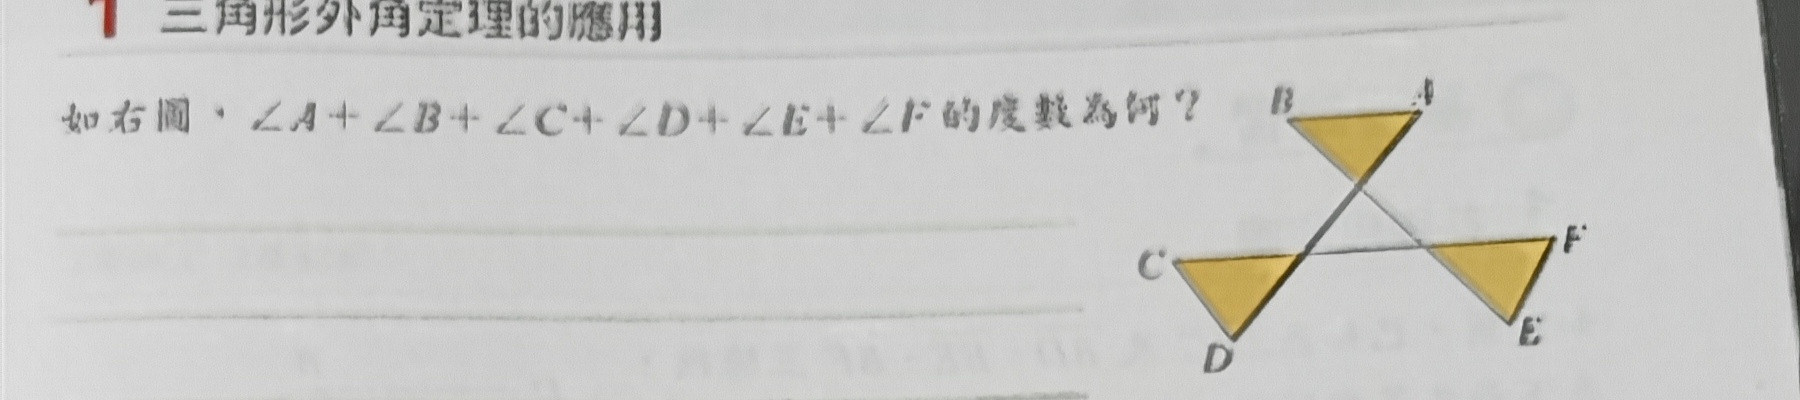 1 三角形外角定理的應用
如右圖,∠A+∠B+∠C+∠D+∠E+∠F的度數為何?
B A
C F
D E